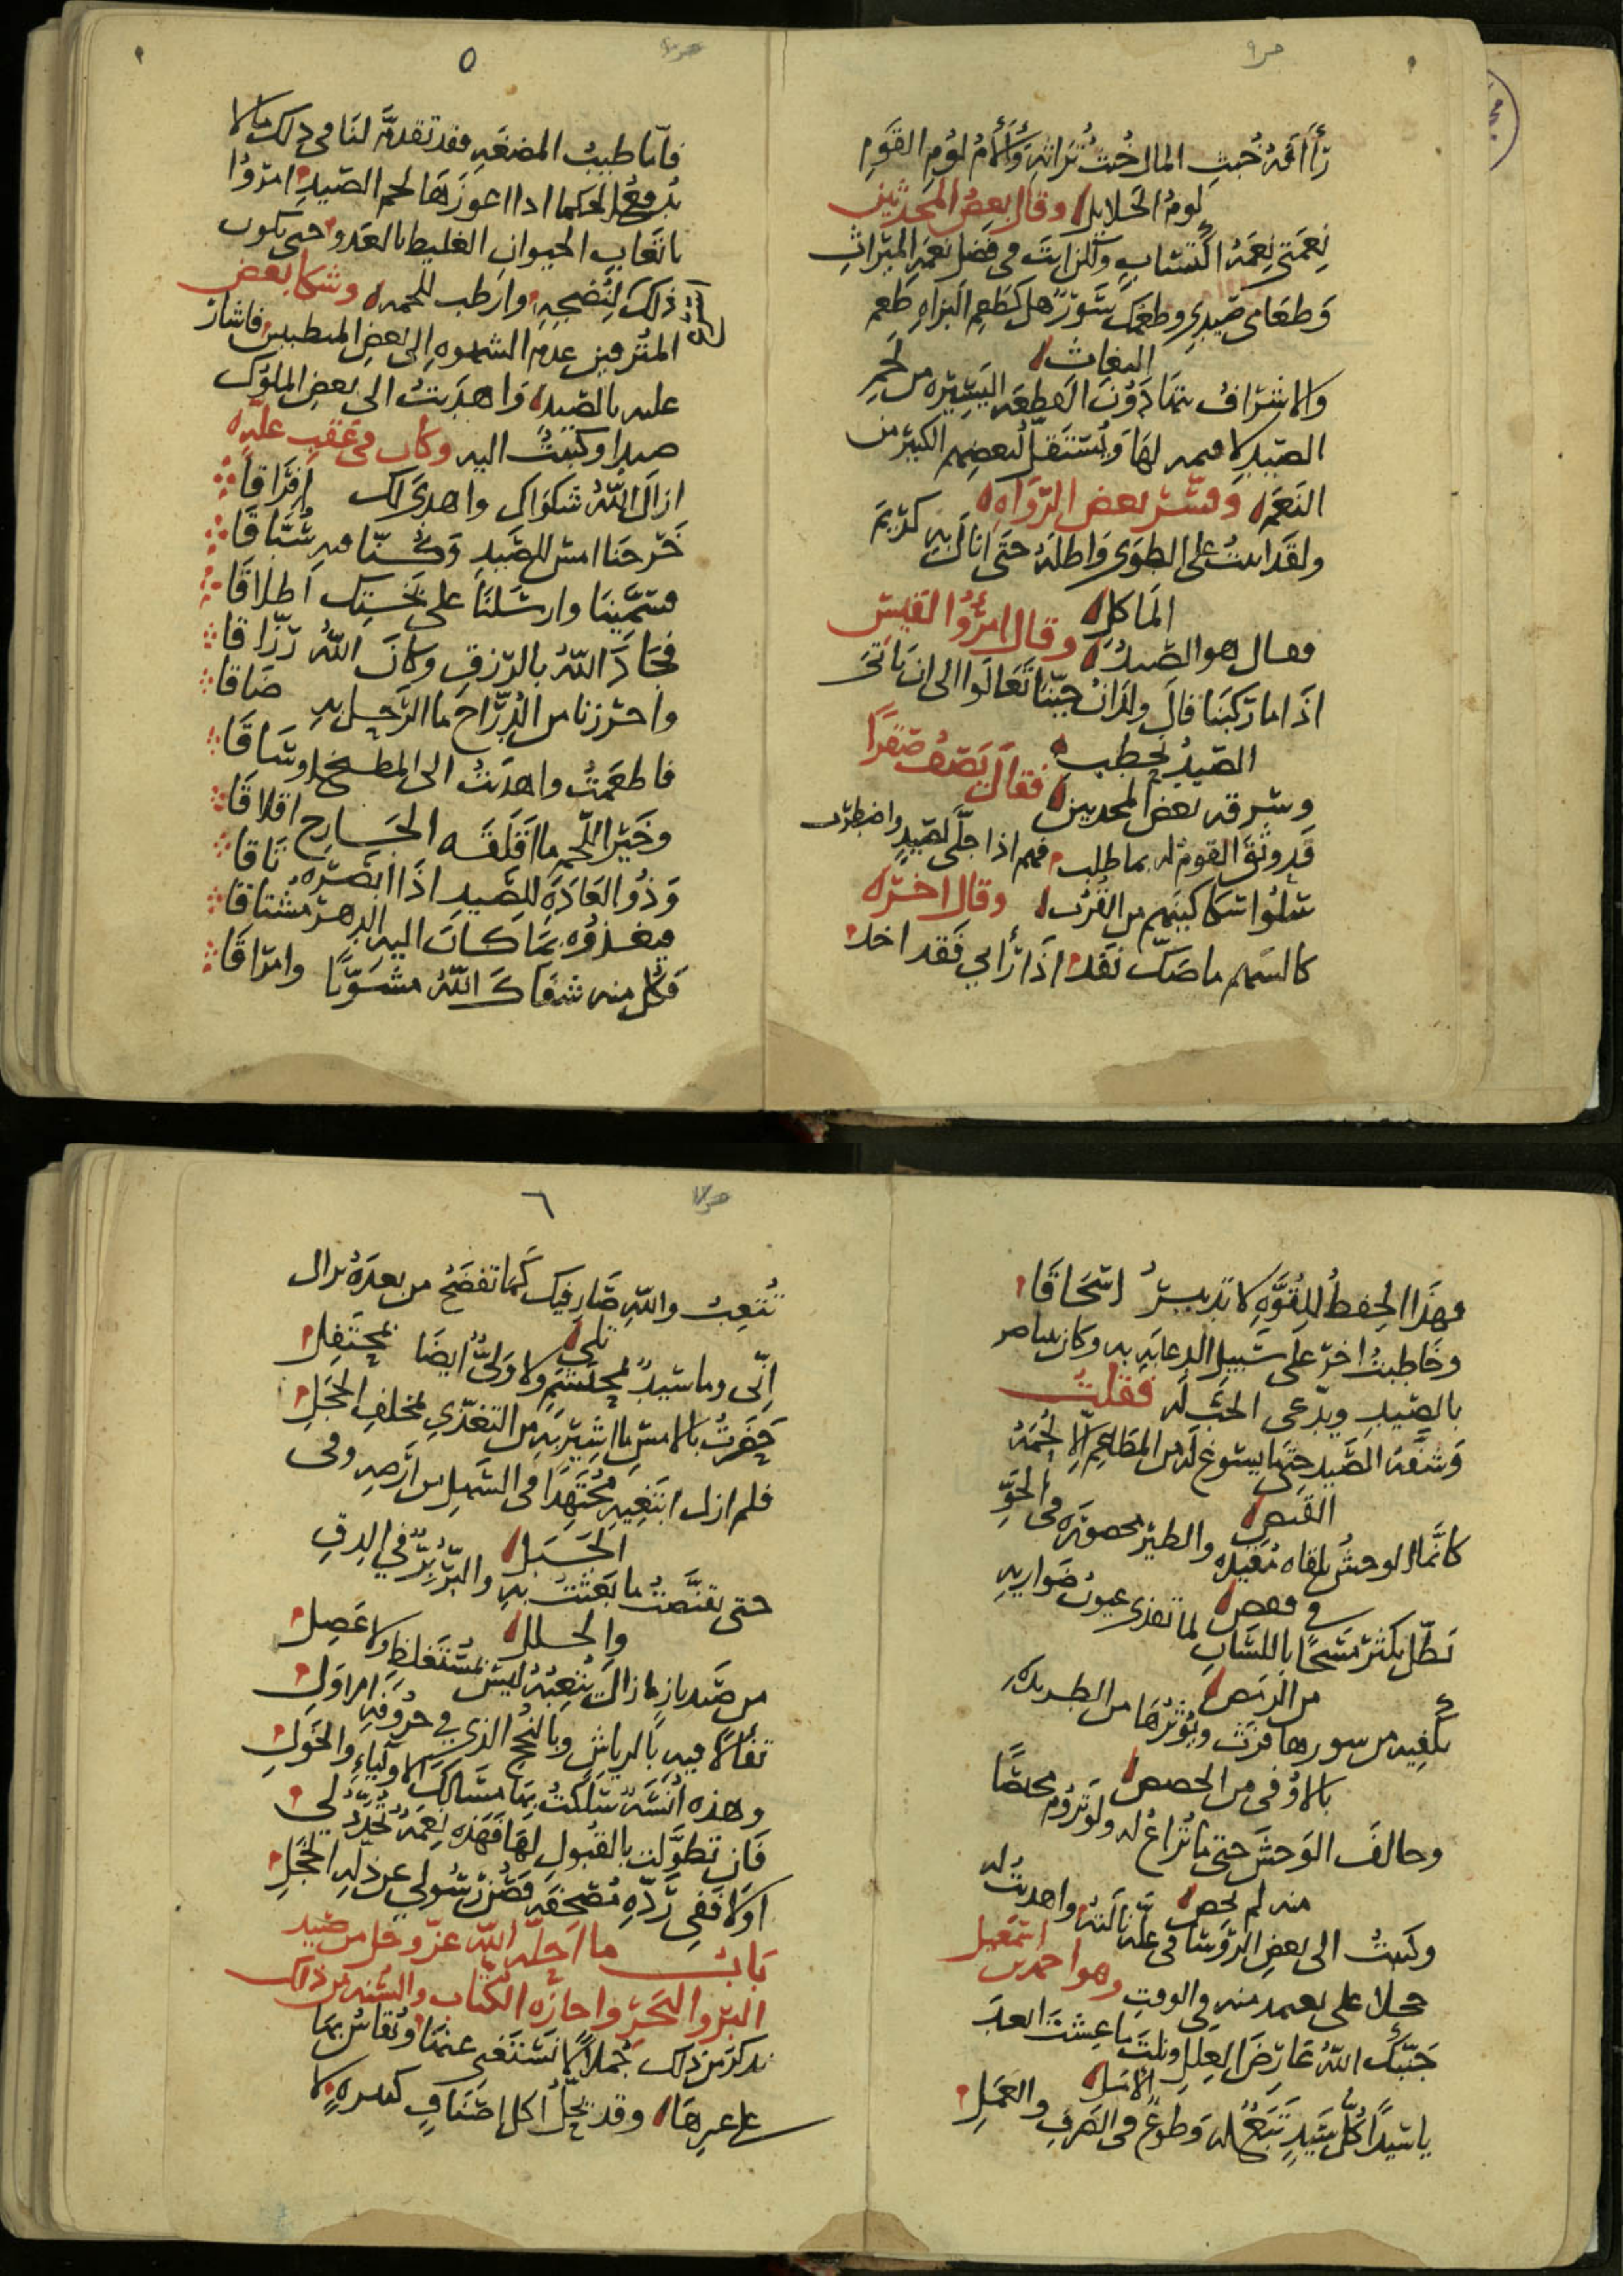 رأآفة خبث المال خبث تراثه وألأم لؤم القوم
لوم الحلايل وقال بعض المحدثين
نعمتى نعمة اكتساب ولكن انت فى فضل نعمة الميراث
وطعامى صيدى وطعمك سور هل كطعم البزاه طعم
البغاث
والاشراف يتهادون القطعة اليسيره من لحم
الصيد لا قيمه لها ويستقل لبعضهم الكبير من
النعم وفسر بعض الرواه
ولقد ابيت على الطوى واظله حتى انال به كريم
الماكل
فقال هو الصيد وقال امرؤ القيس
اذا ما ركبنا قال ولدان حينا تعالوا الى ان ياتى
الصيد نحطب
وسرقه بعض المحدثين فقال يصف صقرا
قد وثق القوم له بما طلب فهم اذا جلى لصيد واضطرب
سلوا سكاكينهم من القرب وقال اخر
كالسهم ما صك نفذ اذا رأى فقد اخذ
٥
فاما طبيب المضغة فقد تقدمه لنا فى ذلك ما لا
يدفع الحكما اذا اعوزها لحم الصيد امروا
باتعاب الحيوان الغليظ بالعدو حتى يكون
ذلك لنضجه وارطب للحمه وشكا بعض
المترفين عدم الشهوه الى بعض المتطببين فاشار
عليه بالصيد واهديت الى بعض الملوك
صيدا وكتبت اليه وكان فى عقب عله
ازال الله شكواك واهدى لك إفراقا
خرجنا امس للصيد وكنا فيه سباقا
فسمينا وارسلنا على بختك اطلاقا
فجاد الله بالرزق وكان الله رزاقا
واحرزنا من الدراج ما الرحل به ضاقا
فاطعمت واهديت الى المطبخ اوساقا
وخير اللحم ما اقلقه الجارح اقلاقا
وذو العادة للصيد اذا ابصره تاقا
فيغذوه بما كان اليه الدهر مشتاقا
فكل منه شفاك الله مشويا وامراقا
فهذا الحفظ للقوه لا تدبير اسحاقا
وخاطبت اخر على سبيل الدعابه به وكان
بالصيد ويدعى الحب له فقلت
وشفه الصيد حتى ما يسوغ له من المطاعم إلا لحمة
القنص
كانما الوحش تلقاه مقيده والطير محصوره فى الجو
فى قفص
تظل تكثر مسحا باللسان لما تقذى عيون ضواريه
من الرمص
تكفيه من سورها فرث ويؤثرها من الطريده
بالاوفى من الحصص
وحالف الوحش حتى ما تراع له ولو تروم محصا
منه لم تحص
وكتبت الى بعض الروسا فى علة نالته واهديت له
حجلا على منه فى الوقت وهو احمد بن اسمعيل
جنبك الله عارض العلل ونلت ما عشت ابعد
الامل
يا سيدا كل سيد تبع له وطوع فى الصرف والعمل
٦
تتعب والله صار فيك كما تفضح من بعده يد ال
تلى
إنى وما سيد لمحتشم ولا ولى ايضا بمحتفل
حضرت بالامس ما اشير به من التغذى بمخلف الحجل
فلم ازل ابتغيه مجتهدا فى السهل من ارضه وفى
الجبل
حتى تقنصت ما بعثت به والبر بر فى الدق
والجلل
من صيد باز ما زال يتعبه ليس بمستغلظ ولا عصل
تفالا فيه بالرياش وبالنجح الذى فى حروفه امراول
وهذه انسة سلكت بها مسالك الاولياء والخول
فان تطولت بالقبول لها فهذه نعمة تجدد لى
اولا ففى رده مضحفة فصن رسولى عن ذلة الخجل
باب ما احله الله عز وجل من صيد
البر والبحر واجازه الكتاب والسنة من ذلك
نذكر من ذلك جملا لا نستغنى عنها ويقاس بها
على غيرها وقد يحل اكل اصناف كثيره لا